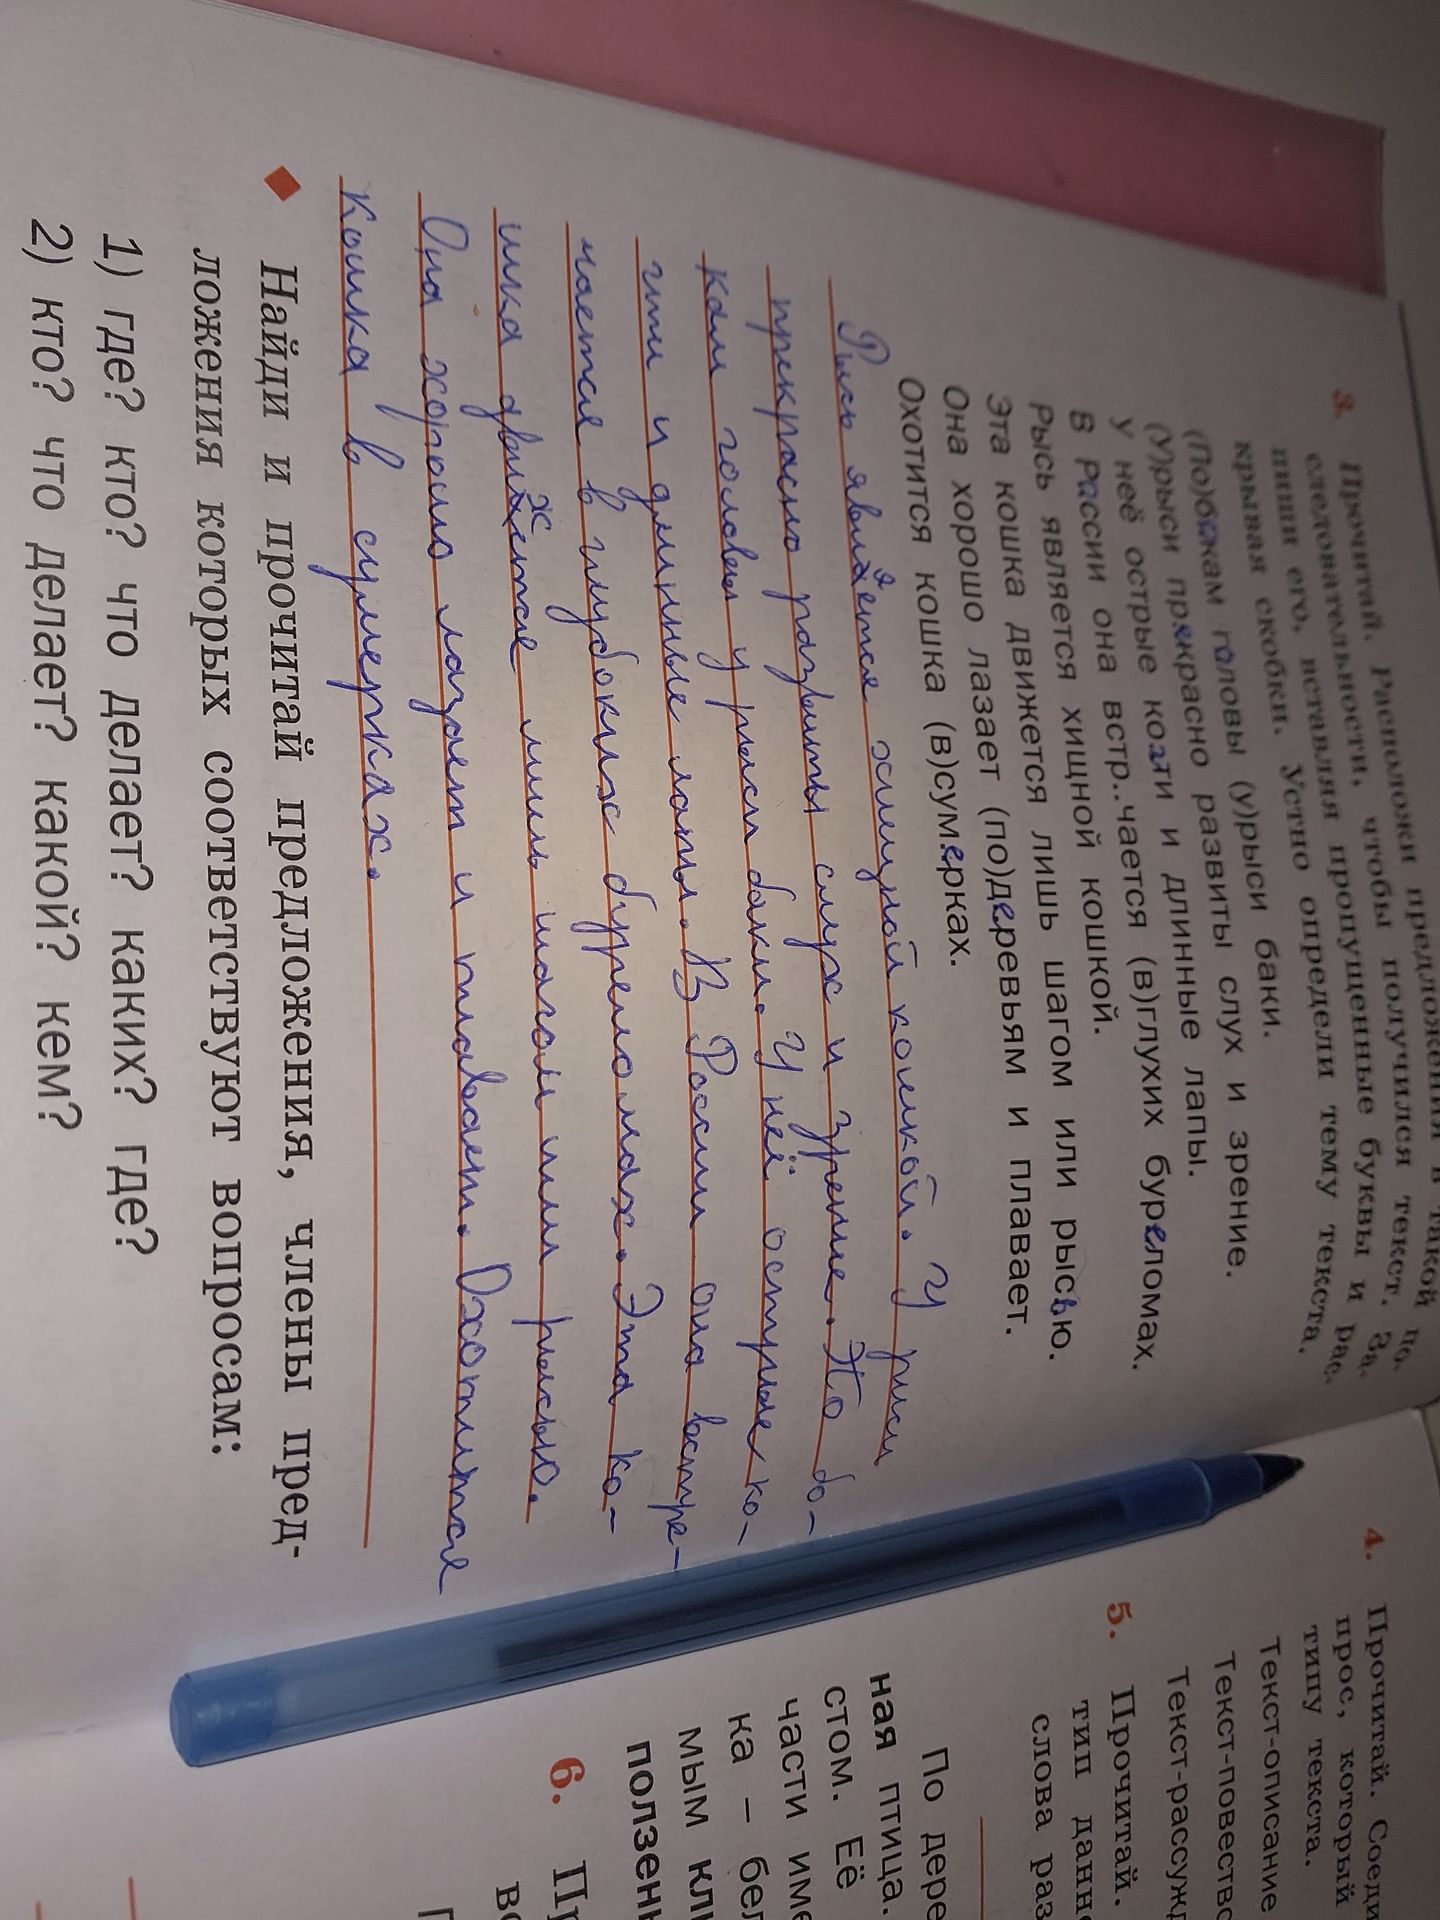 3. Прочитай. Расположи предложения в такой по-
следовательности, чтобы получился текст. За-
пиши его, вставляя пропущенные буквы и рас-
крывая скобки. Устно определи тему текста.
(По)бокам головы (у)рыси баки.
(У)рыси прекрасно развиты слух и зрение.
У неё острые когти и длинные лапы.
В России она встр..чается (в)глухих буреломах.
Рысь является хищной кошкой.
Эта кошка движется лишь шагом или рысью.
Она хорошо лазает (по)деревьям и плавает.
Охотится кошка (в)сумерках.
Рысь является хищной кошкой. У рыси
прекрасно развиты слух и зрение. По бо-
кам головы у рыси баки. У неё острые ко-
гти и длинные лапы. В России она встре-
чается в глубоких буреломах. Эта ко-
шка движется лишь шагом или рысью.
Она хорошо лазает и плавает. Охотится
кошка в сумерках.
◆ Найди и прочитай предложения, члены пред-
ложения которых соответствуют вопросам:
1) где? кто? что делает? каких? где?
2) кто? что делает? какой? кем?
4. Прочитай. Соеди
прос, который
типу текста.
Текст-описание
Текст-повество
Текст-рассужд
5. Прочитай.
тип данн
слова раз
По дере
ная птица.
стом. Её
части име
ка – бел
мым кл
ползен
6. Пр